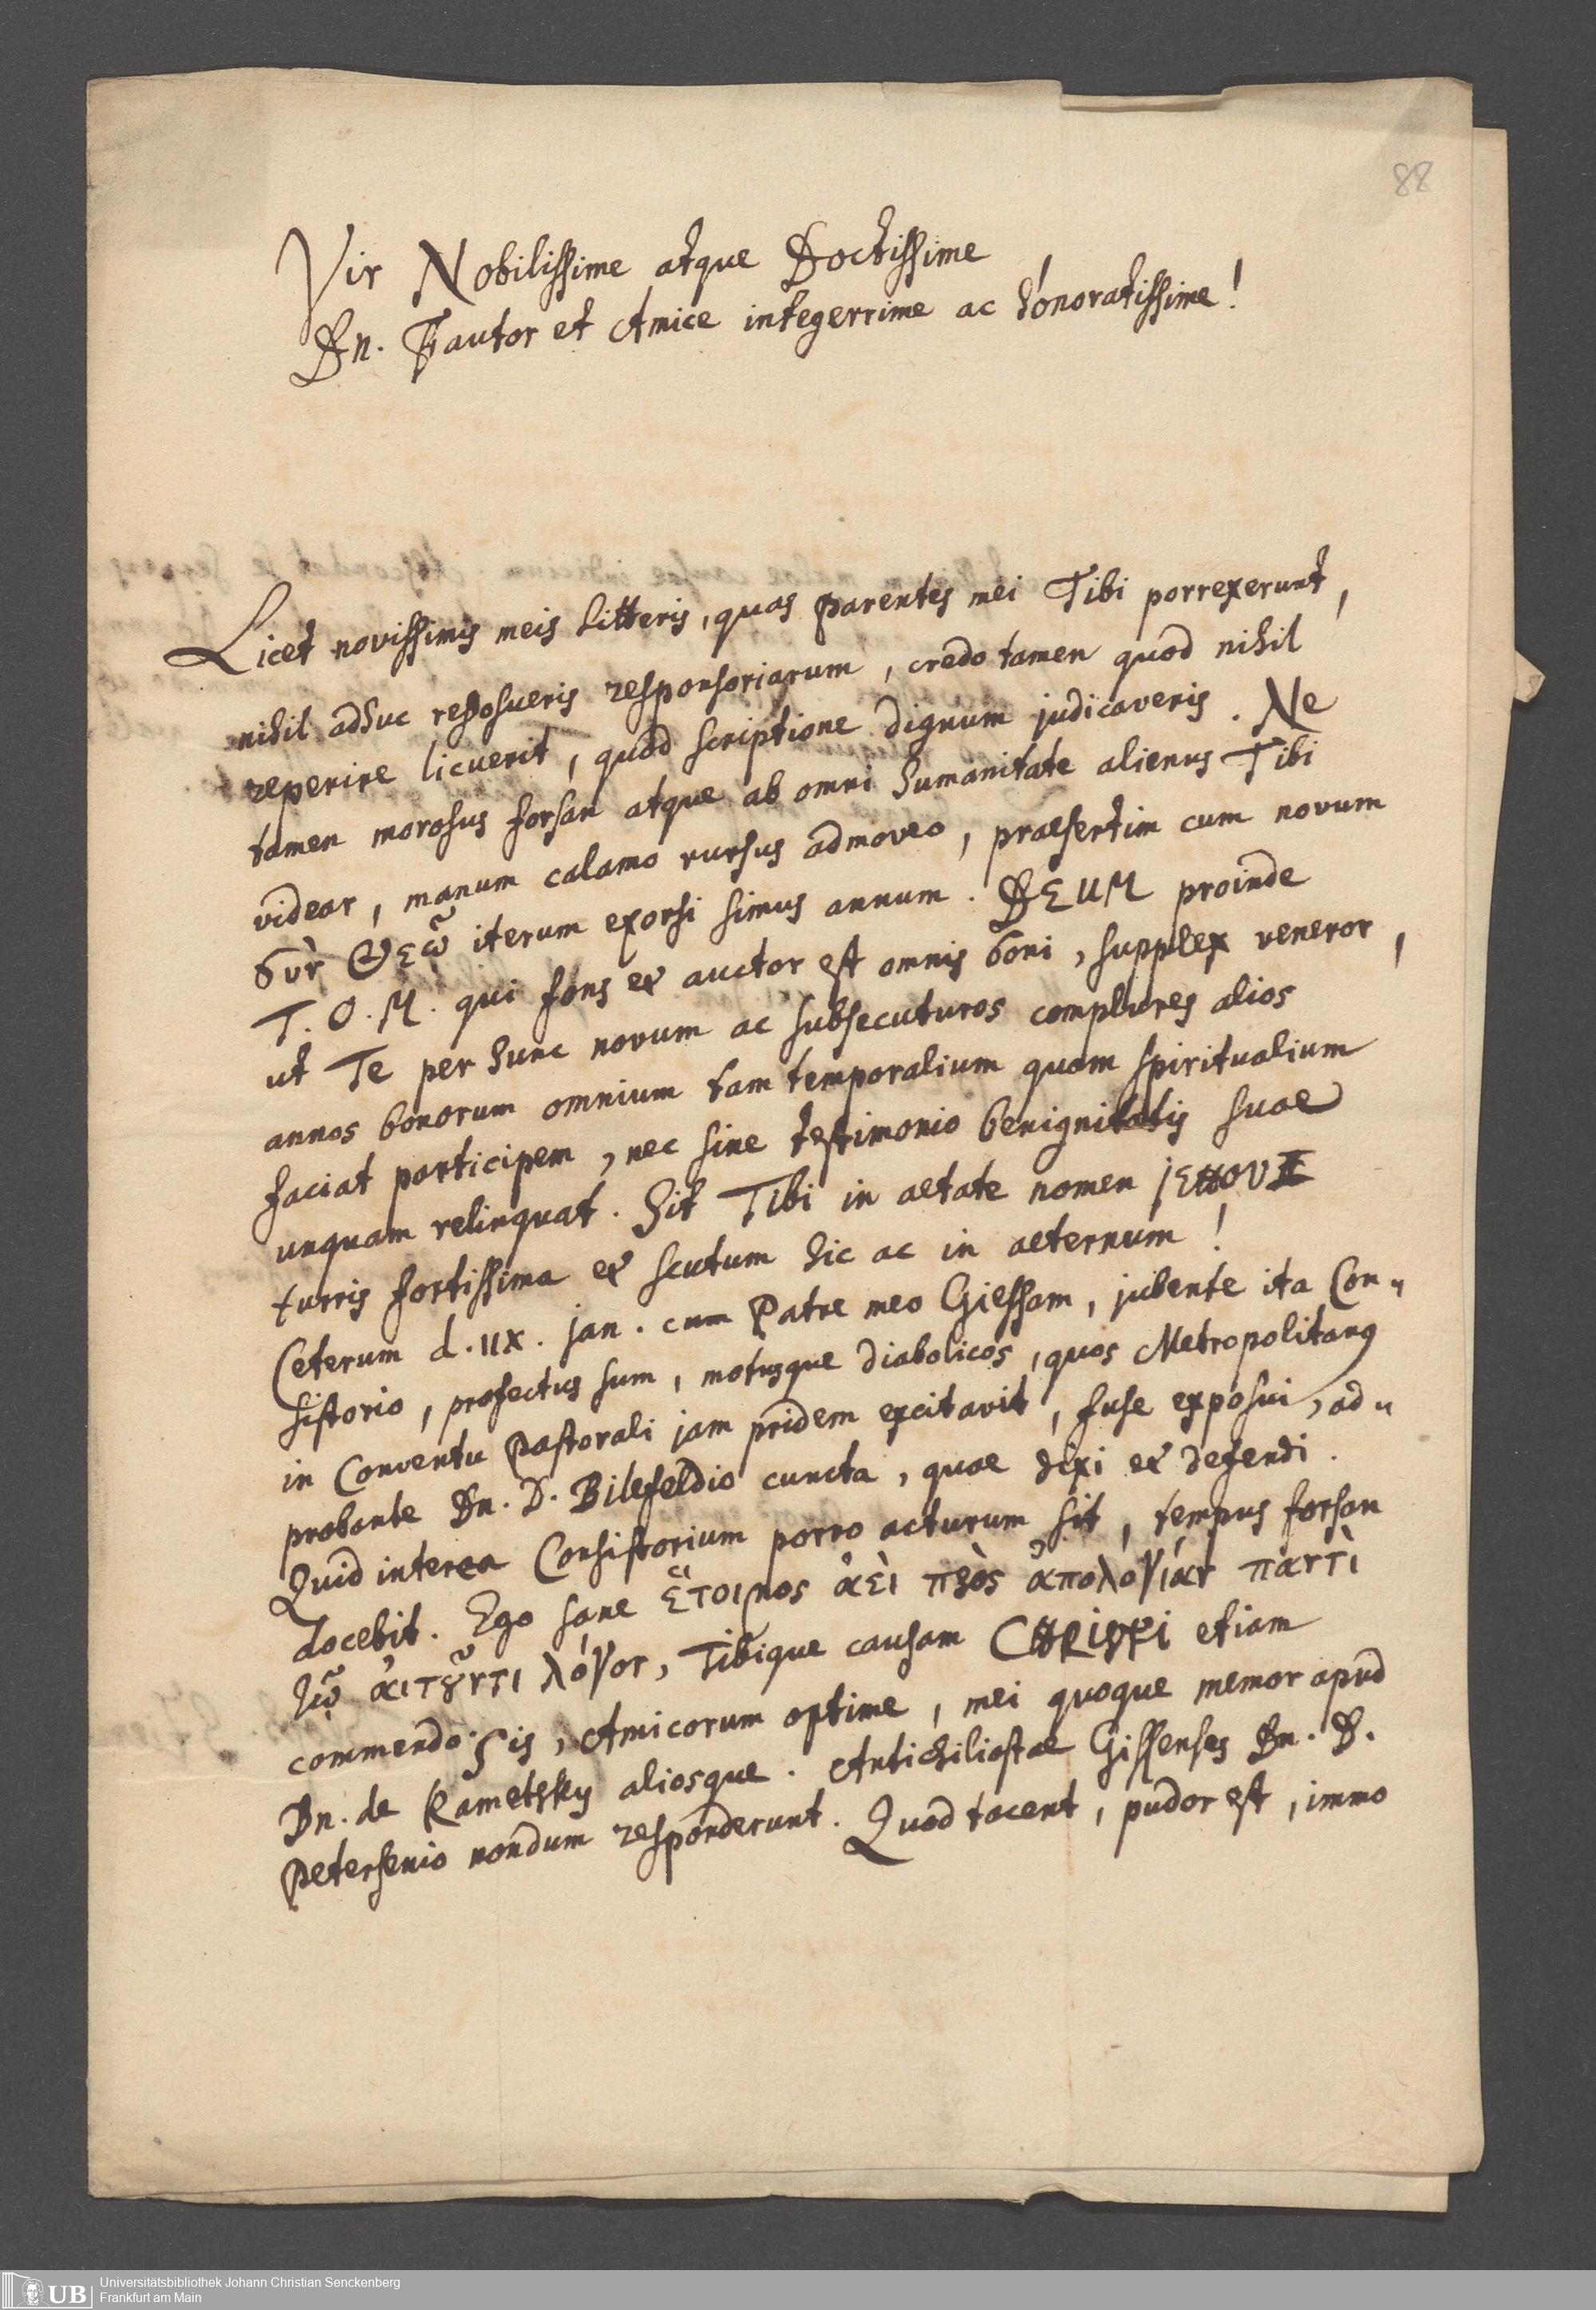 88
Vir Nobilissime atque Doctissime
Dn. Fautor et Amice integerrime ac honoratissime!
Licet novissimis meis litteris, quas parentes mei Tibi porrexerunt,
nihil adhuc reposueris responsoriarum, credo tamen quod nihil
reperire licuerit, quod scriptione dignum judicaveris. Ne
tamen morosus forsan atque ab omni humanitate alienus Tibi
videar, manum calamo rursus admoveo, praesertim cum novum
σὺν Θεῷ iterum exorsi simus annum. DEUM proinde
T. O. M. qui fons et auctor est omnis boni, supplex veneror,
ut Te per hunc novum ac subsecuturos complures alios
annos bonorum omnium tam temporalium quam spiritualium
faciat participem, nec sine testimonio benignitatis suae
unquam relinquat. Sit Tibi in aetate nomen JEHOVÆ
turris fortissima et scutum hic ac in aeternum!
Ceterum d. IIX. jan. cum Patre meo Giessam, jubente ita Con-
sistorio, profectus sum, motusque diabolicos, quos Metropolitanus
in Conventu Pastorali jam pridem excitavit, fuse exposui, ad-
probante Dn. D. Bilefeldio cuncta, quae dixi et defendi.
Quid interea Consistorium porro acturum sit, tempus forsan
docebit. Ego sane ἕτοιμος ἀεὶ πρὸς ἀπολογίαν παντὶ
τῷ αἰτοῦντι λόγον, Tibique causam CHRISTI etiam
commendo. Sis, Amicorum optime, mei quoque memor apud
Dn. de Kametsky aliosque. Antichiliastae Gissenses Dn. D.
Petersenio nondum responderunt. Quod tacent, pudor est, immo
UB
Universitätsbibliothek Johann Christian Senckenberg
Frankfurt am Main